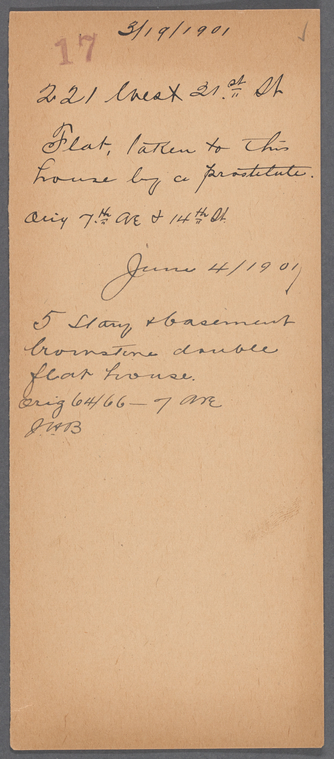 3/19/1901
17
221 West 21.st St
Flat, taken to this
house by a prostitute.
7.th Ave & 14th St.
June 4/1901
5 Story & basement
brownstone double
flat house.
64/66 — 7 Ave